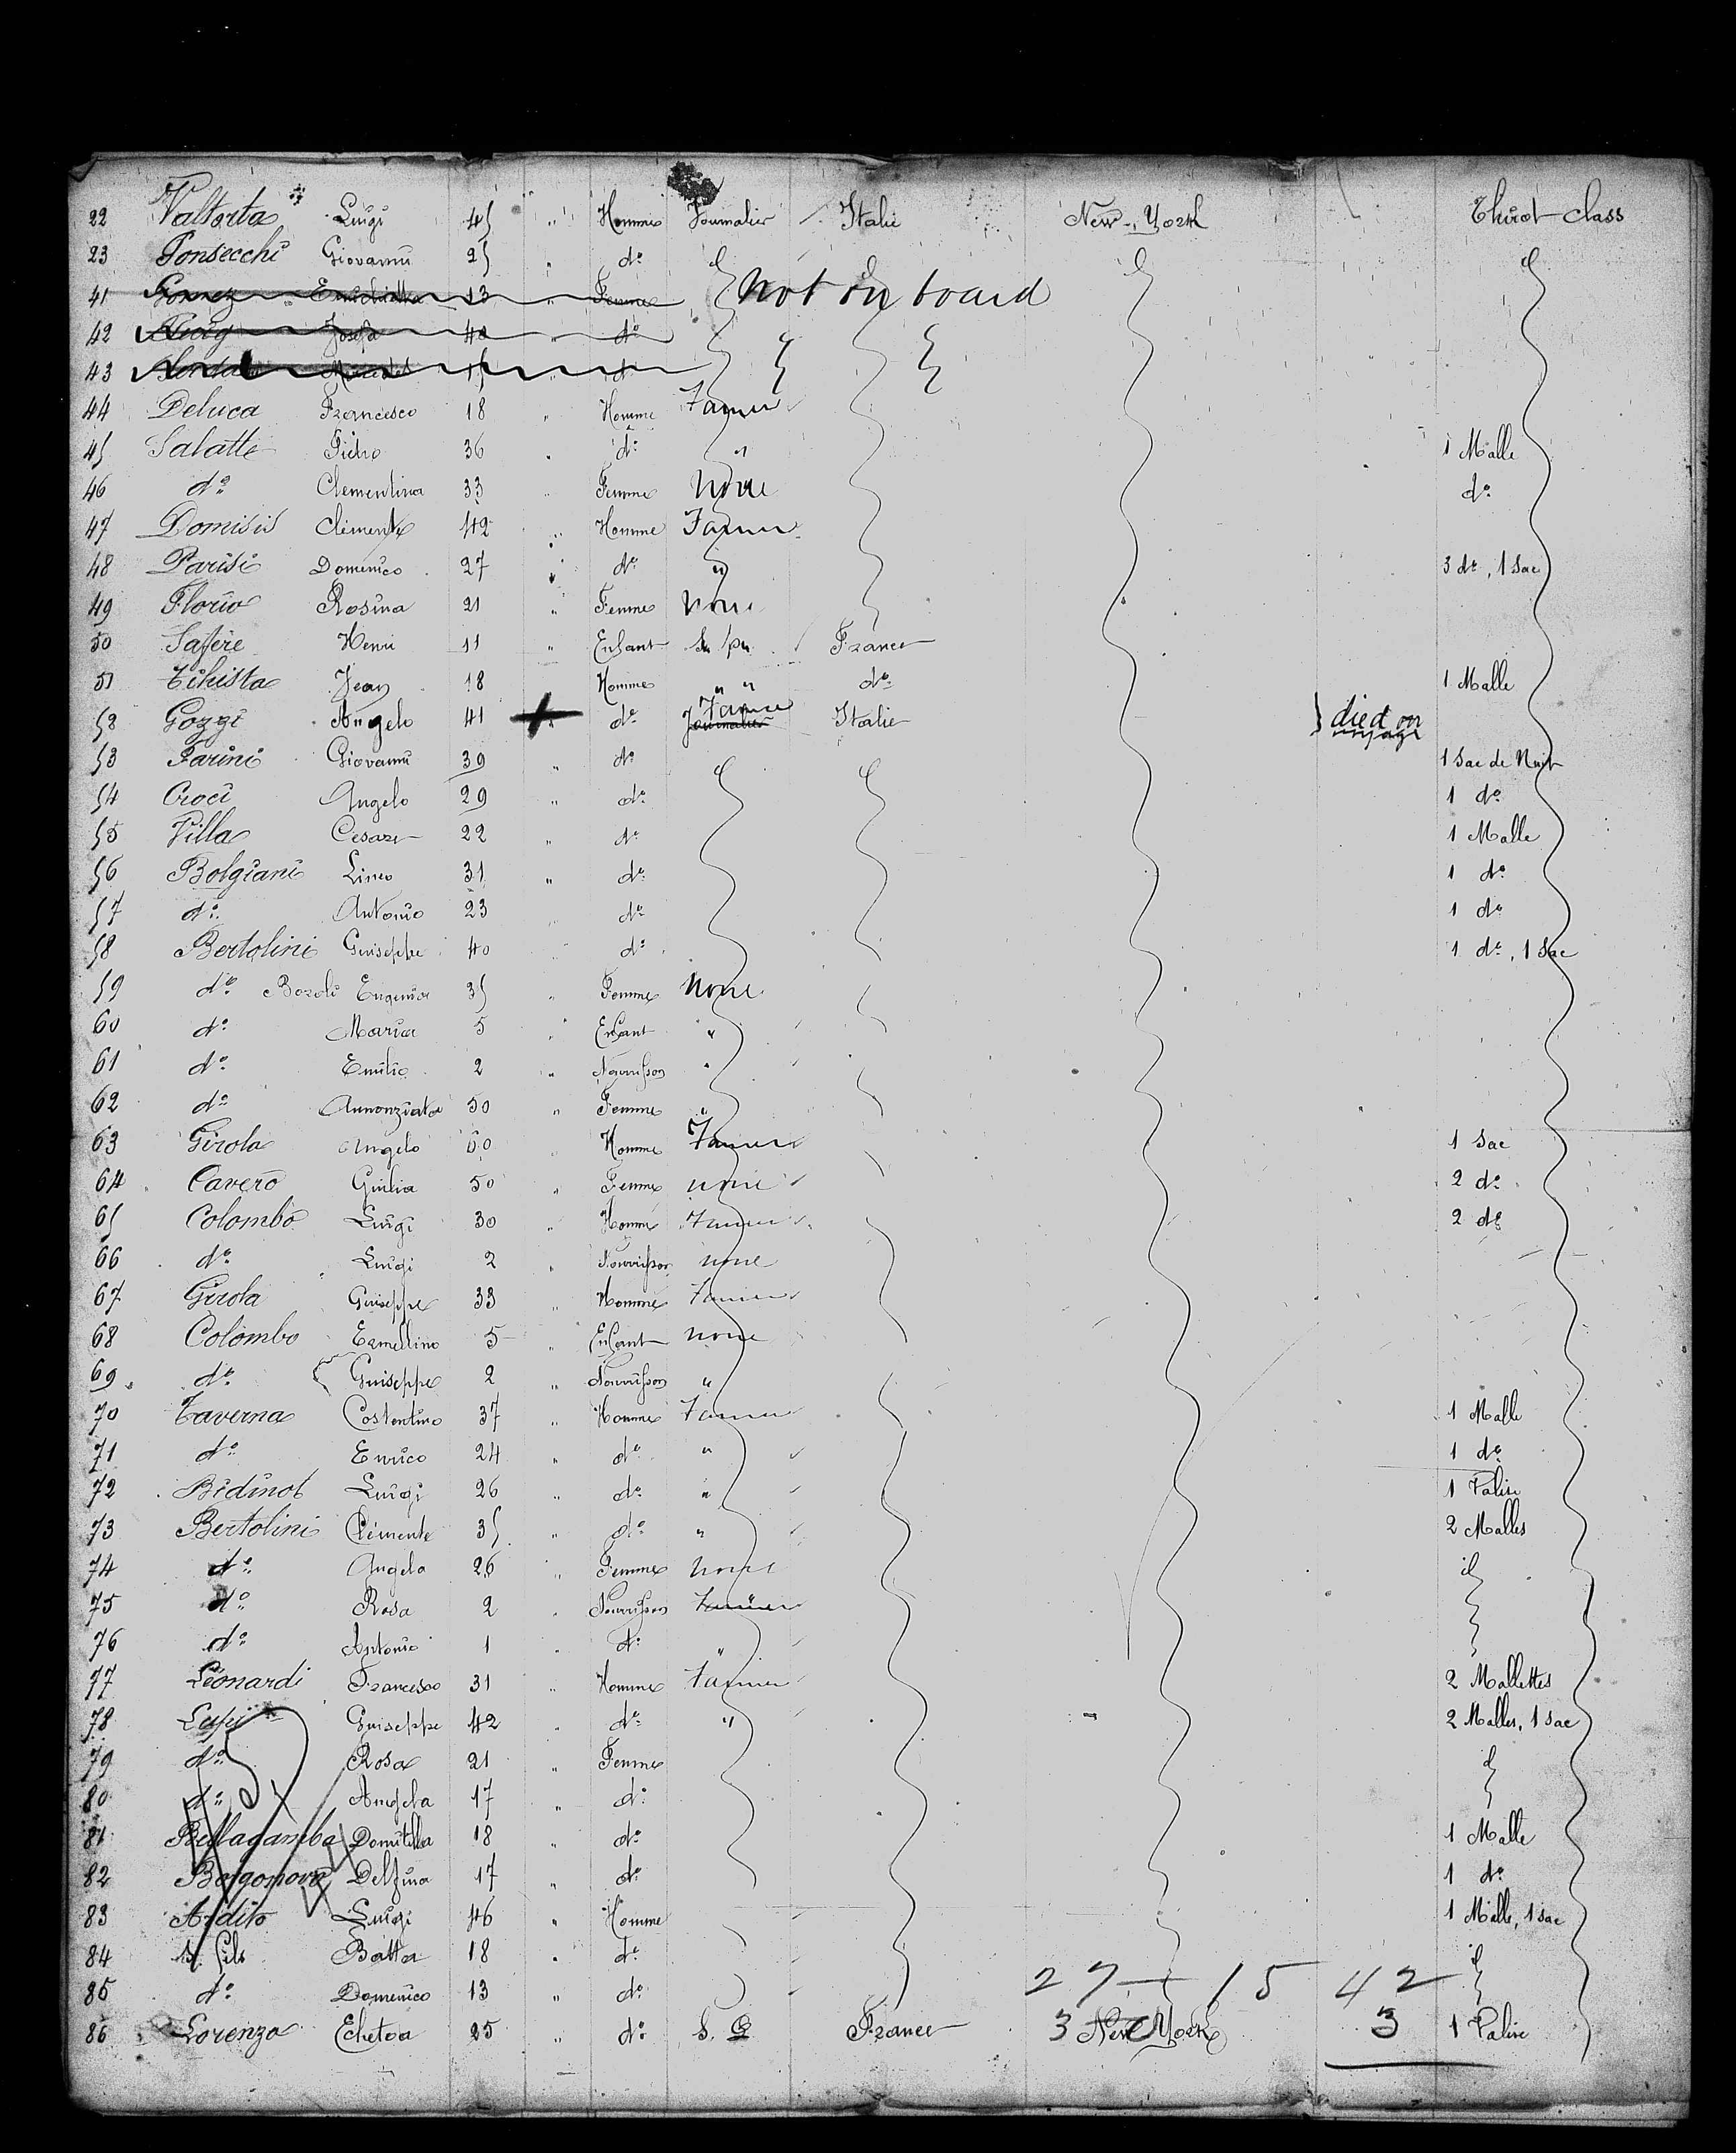 22 Valtorta Luigi 45 " Homme Journalier Italie New-York Third class
23 Fonsecchi Giovanni 25 " do
41 Gomez 13 " Femme Not on board
42 Puig Josefa 40 " do
43 15 " do
44 Deluca Francesco 18 " Homme Farmer
45 Salatte Pietro 36 " do " 1 Malle
46 do Clementina 33 " Femme None do
47 Domisis Clemente 42 " Homme Farmer
48 Parisi Domenico 27 " do " 3 do, 1 Sac
49 Florio Rosina 21 " Femme None
50 Safère Henri 11 " Enfant France
51 Tihista Jean 18 Homme " " do 1 Malle
52 Gozzi Angelo 41 " do Journalier Farmer Italie died on voyage
53 Farini Giovanni 39 " do 1 Sac de Nuit
54 Croci Angelo 29 " do 1 do
55 Villa Cesare 22 " do 1 Malle
56 Bolgiani Lineo 31 " do 1 do
57 do Antonio 23 do 1 do
58 Bertolini Guiseppe 40 do 1 do, 1 Sac
59 do Bozoli Eugenia 35 " Femme None
60 do Maria 5 " Enfant "
61 do Emilio 2 " Nourrisson "
62 do Annonziata 50 " Femme "
63 Girola Angelo 60 Homme Farmer 1 Sac
64 Cavero Giulia 50 " Femme none 2 do
65 Colombo Luigi 30 " Homme Farmer 2 do
66 do Luigi 2 " Nourrisson none
67 Girola Guiseppe 33 " Homme Farmer
68 Colombo Ermellino 5 " Enfant none
69 do Guiseppe 2 " Nourrisson "
70 Taverna Costentino 37 " Homme Farmer 1 Malle
71 do Enrico 24 " do " 1 do
72 Bidinot Luigi 26 " do " 1 Valise
73 Bertolini Clémente 35 " do " 2 Malles
74 do Angela 26 " Femme none
75 do Rosa 2 " Nourrisson Farmer
76 do Antonio 1 " do "
77 Léonardi Francesco 31 " Homme Farmer 2 Mallettes
78 Lupi Guiseppe 42 " do " 2 Malles, 1 Sac
79 do Rosa 21 " Femme
80 do Angela 17 " do
81 Bellagamba Domitilla 18 " do 1 Malle
82 Borgonovo Delfina 17 " do 1 do
83 Ardito Luigi 46 " Homme 1 Malle, 1 Sac
84 fils Batta 18 " do
85 do Domenico 13 " do 27 - 15 42
86 Lorenzo Echetoa 25 " do S. P France 3 New York 3 1 Valise